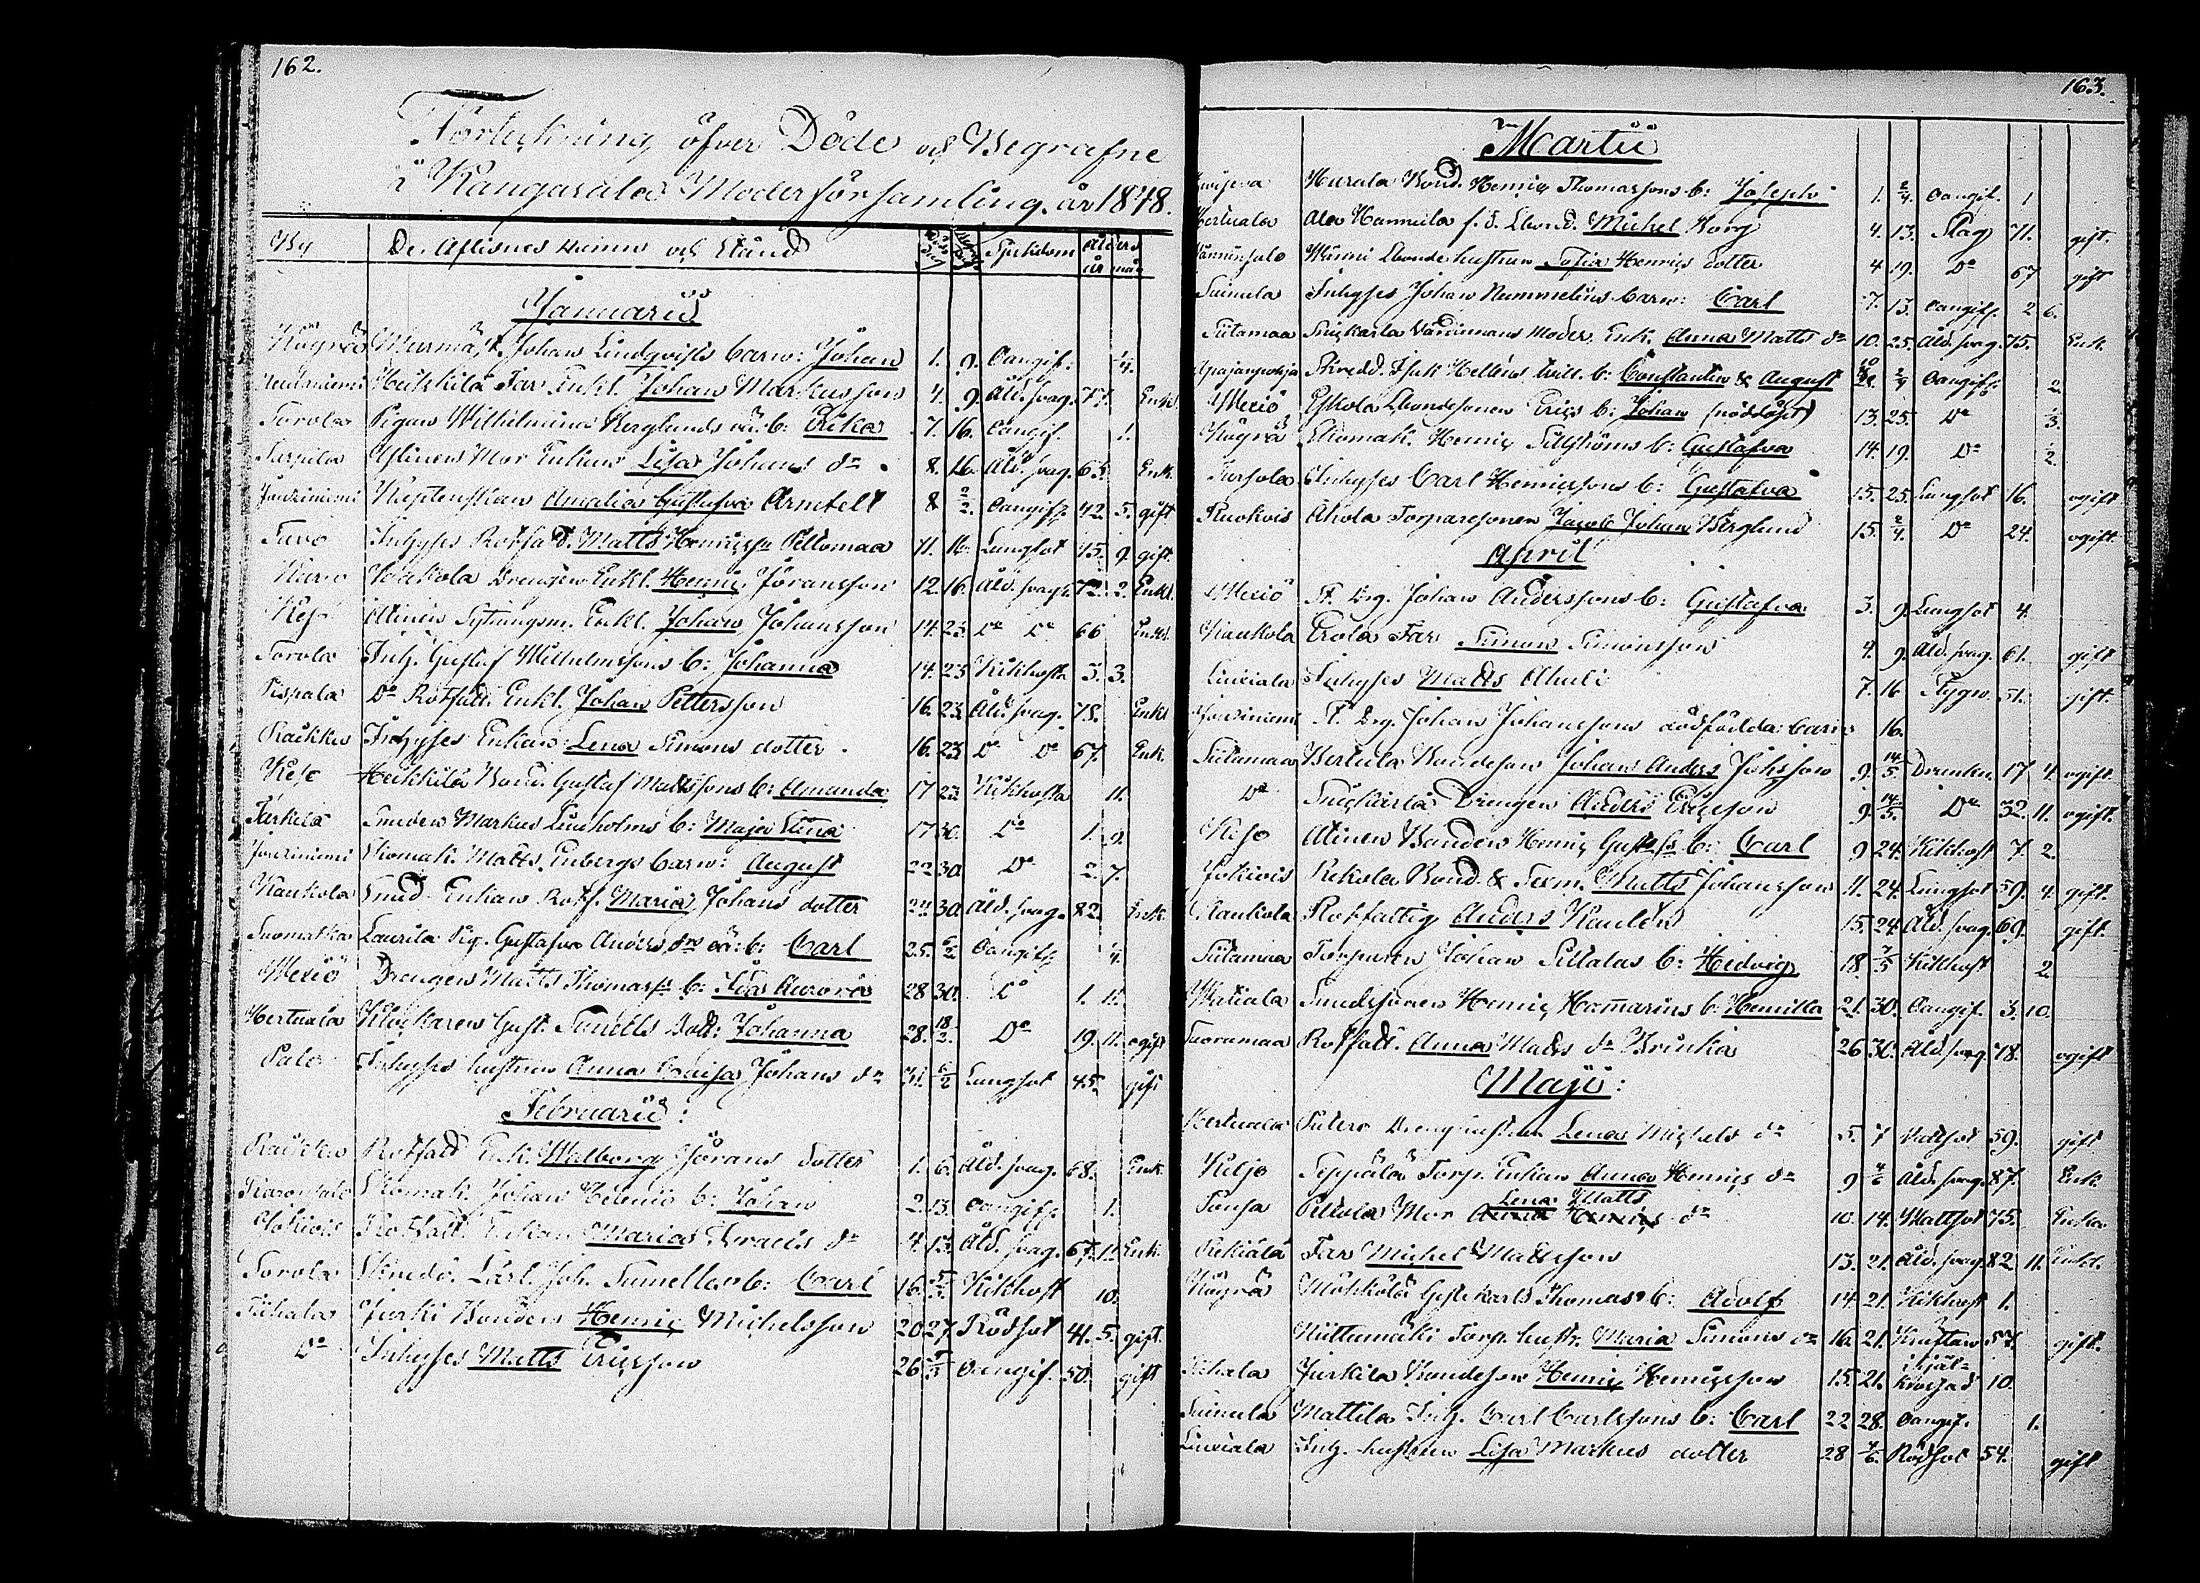 162.
Förteckning öfver Döde och Begrafne
i Kangasala Moderförsamling år 1848.
By De Aflidnes Namn och Stånd Sjukdom Ålders år mån
Januarii
Murmäst. Johan Lindqvists barn: Johan 1. 9. Oangif. 1/4.
Heikkilä Far Enkl. Johan Markusson 4. 9. Åld. svag. 77. Enkl.
Sorola Pigan Wilhelmina Berglunds oä. b: Erika 7. 16. Oangif. 1.
Sarpila Mor Enkan Lisa Johans dr 8. 16. Åld. svag. 65. Enk.
Amalia Gustafva Armfelt 8 2/2. Oangif. 42. 5. gift
Suro Inhyses Rotfatt. Matts Henricss. Peltomaa 11. 16. Lungsot 75. 9. gift.
Jaakola Drengen Enkl. Henric Göransson 12. 16. Åld. svagh. 72. 2. Enkl.
Keso Sytningsm. Enkl. Johan Johansson 14. 23. Do Do 66 Enkl.
Sorola Inh. Gustaf Wilhelmssons b: Johanna 14. 23 Kikhosta 3. 3.
Pispala Do Rotfatt. Enkl. Johan Pettersson 16. 23. Åld. svag. 78. Enkl
Raikku Inhyses Enkan Lena Simons dotter 16. 23. Do Do 67. Enk.
Keso Heikkilä Bond. Gustaf Mattssons b: Amanda 17 23. Kikhosta 11.
Smeden Markus Lindholms b: Maja Stina 17 30. Do 1. 9.
Skomak. Matts Enbergs barn: August 22 30. Do 2. 7.
Kaukola Smed. Enkan Rotf. Maria Johans dotter 22. 30. Åld. svag. 82. Enk.
Suomatka Laurila Pig. Gustafva Anders drs oä: b: Carl 25. 6/2 Oangif. 1/4.
Wexiö Drengen Matts Thomass. b: Ida Aurora 28 30. Do 1. 11.
Hertuala Klockaren Gust. Tunells Dott: Johanna 28. 18/2. Do 19. 11. ogift
Palo Inhyses hustrun Anna Caisa Johans dr 31. 6/2 Lungsot 45. gift
Februarii:
Raikku Rotfatt. Enk. Walborg Görans dotter 1. 6. Åld. svag. 68. Enk
Skomak. Johan Helenii b: Johan 2. 13. Oangif. 1.
Rotfatt. Enkan Maria dr 4. 13. Åld. svag. 67. 11. Enk.
Sorola Carl 16. 5/3. Kikhost 10.
Tiihala Jurki Bonden Henric Michelsson 20 27. Rödsot 41. 5. gift.
Do Inhyses Matts Ericsson 26 5/3 Oangif. 50. gift
163.
Martii
Bond. Henric Thomassons b: Joseph 1. 2/4. Oangif. 1
Hertuala Ala Hannula f. d. Lbond. Michel Borg 4. 13. Slag 71. gift.
Lbonde hustrun Sofia Henrics dotter 4 19. Do 67 gift
Suinula Inhyses Johan Nummelins barn: Carl 7. 13. Oangif. 2 6.
Siitamaa Moder. Enk. Anna Matts dr 10. 25. Åld. svag. 75. Enk.
Skredd. Isak Helléns b: Constantin & August 2/4 Oangif. 2.
Wexiö Eskola Lbondesonen Erics b: Johan (nöddöpt) 13. 25. Do 1/3.
Skomak. Henric b: Gustafva 14. 19. Do 1/2.
Inhyses Carl Henricssons b: Gustafva 15. 25. Lungsot 16. ogift
Ahola Torparesonen Jacob Johan Berglund 15. 2/4. Do 24. ogift.
April
Wexiö St. Drg. Johan Anderssons b: Gustafva 3. 9. Lungsot 4.
Kaukola Erola Far Simon Simonsson 4. 9. Åld. svag. 61. gift
Liuciala Inhyses Matts Ahuli 7. 16 Stygn 51. gift.
St. Drg. Johan Johanssons dödfödda barn 16.
Siitamaa Bertula Bondeson Johan Anders Johsson 9. 14/5. Drunkn. 17 4. ogift.
Do Drengen Anders Ericsson 9. 14/5. Do 32. 11. ogift.
Keso Bonden Henric Gustss b: Carl 9 24. Kikhost 7. 2.
Bond. & Sexm. Matts Johansson 11. 24. Lungsot 59. 4. gift.
Kaukola Rotfattig Anders Kaulén 15. 24. Åld. svag. 69. gift.
Siitamaa Torparen Johan b: Hedvig 18. 7/5. Kikhost 2.
Smedsonen Henric Hamarins b: Hemilla 21. 30. Oangif. 3. 10.
Suoramaa Rotfatt. Anna Matts dr Brinka 26 30. Åld. svag. 78. ogift
Maji:
Hertuala Dreng hustrun Lena Michels dr 5. 7 59. gift
Seppälä Torp. Enkan Anna Henrics dr 9 4/6 Åld. svag. 87. Enk.
Mor Lena Matts dr 10. 14. Wattsot 75. Enka
Far Michel Mattsson 13. 21. Åld. svag. 82. 11. Enkl.
Thomas b: Adolf 14. 21. Kikhost 1.
Niittumäki Torp. hustr. Maria Simons dr 16. 21. 57. gift.
Tiihala Jurkila Bondeson Henric Henricsson 15. 21. 10.
Suinula Mattila Inh. Carl Carlssons b: Carl 22 28. Oangif. 1.
Liuciala Inh. hustrun Lisa Markus dotter 28 4/6. Rödsot 54. gift